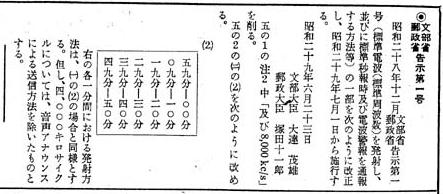 ◎文部省
郵政省告示第一号
昭和二十八年十二月文部省
郵政省告示第一
号(標準電波(標準周波数)を発射し、
並びに標準秒報時及び電波警報を通報
する方法等)の一部を次のように改正
し、昭和二十九年七月一日から施行す
る。
昭和二十九年六月二十三日
文部大臣 大達 茂雄
郵政大臣 塚田十一郎
五の1の注2中「及び8,000 kc/s」
を削る。
五の2の㈠の(2)を次のように改め
る。
(2)
五九分―〇〇分
〇九分―一〇分
一九分―二〇分
二九分―三〇分
三九分―四〇分
四九分―五〇分
右の各一分間における発射方
法は、㈠の(2)の場合と同様とす
る。但し、四、〇〇〇キロサイク
ルについては、音声アナウンス
による送信方法を除いたものと
する。